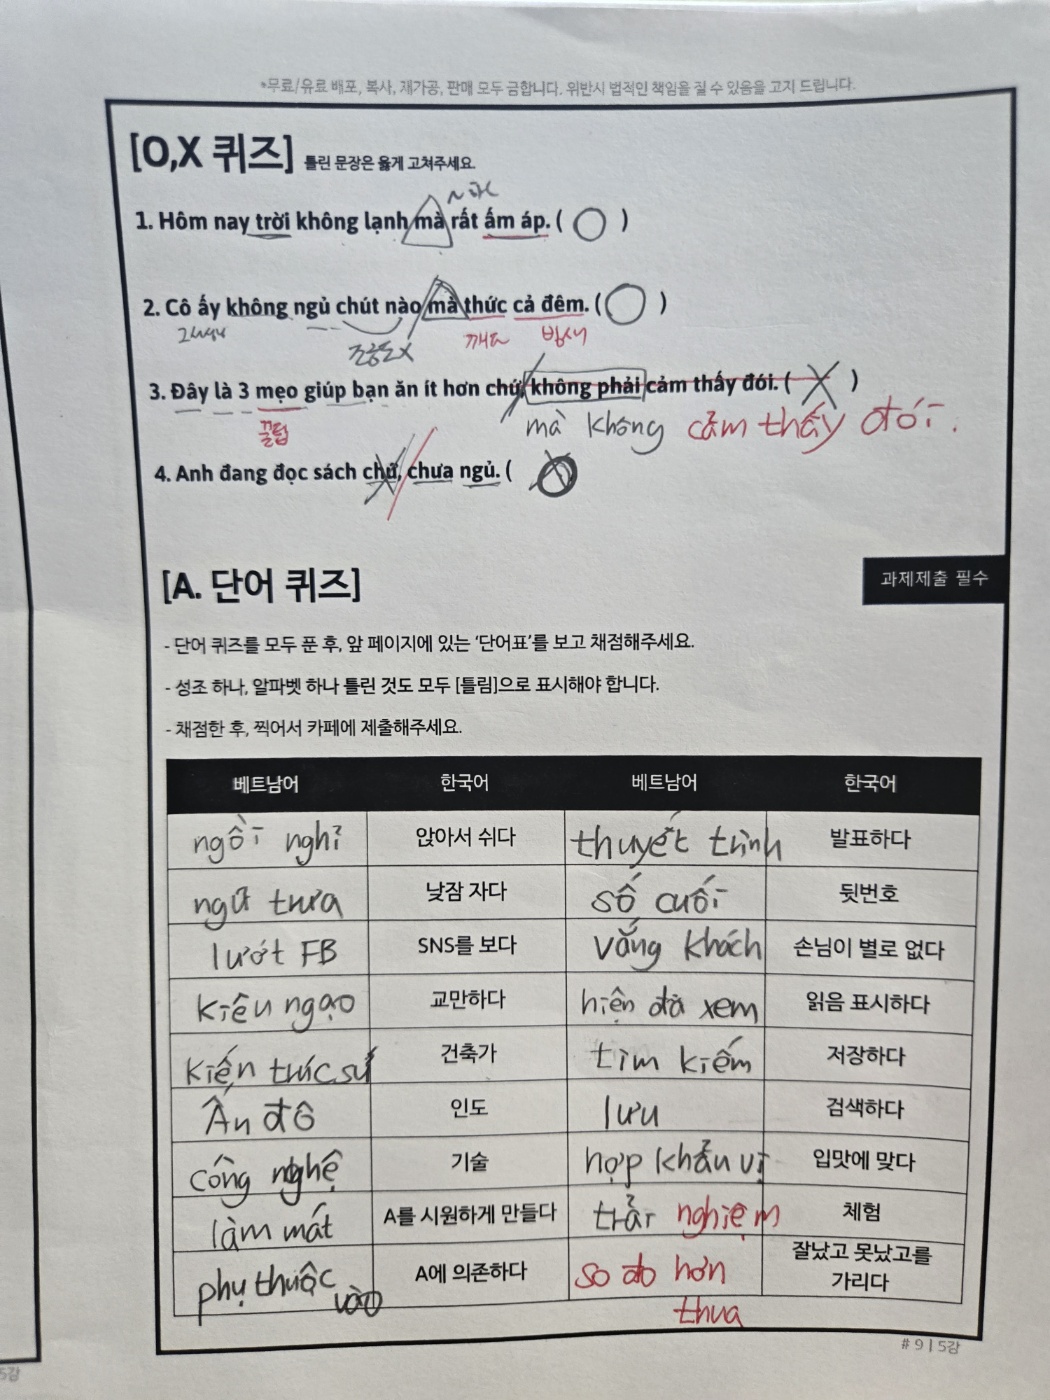 *무료/유료 배포, 복사, 재가공, 판매 모두 금합니다. 위반시 법적인 책임을 질 수 있음을 고지 드립니다.
[O,X 퀴즈] 틀린 문장은 옳게 고쳐주세요.
1. Hôm nay trời không lạnh mà rất ấm áp. ( O )
2. Cô ấy không ngủ chút nào mà thức cả đêm. ( O )
조금도X 깨다 밤새
3. Đây là 3 mẹo giúp bạn ăn ít hơn chứ, không phải cảm thấy đói. ( X )
꿀팁 mà không cảm thấy đói.
4. Anh đang đọc sách chứ, chưa ngủ. ( O
[A. 단어 퀴즈]
과제제출 필수
- 단어 퀴즈를 모두 푼 후, 앞 페이지에 있는 ‘단어표’를 보고 채점해주세요.
- 성조 하나, 알파벳 하나 틀린 것도 모두 [틀림]으로 표시해야 합니다.
- 채점한 후, 찍어서 카페에 제출해주세요.
베트남어 한국어 베트남어 한국어
ngồi nghỉ 앉아서 쉬다 thuyết trình 발표하다
ngữ trưa 낮잠 자다 số cuối 뒷번호
lướt FB SNS를 보다 vắng khách 손님이 별로 없다
kiêu ngạo 교만하다 hiện đã xem 읽음 표시하다
kiến trúc sư 건축가 tìm kiếm 저장하다
Ấn độ 인도 lưu 검색하다
công nghệ 기술 hợp khẩu vị 입맛에 맞다
làm mát A를 시원하게 만들다 trải nghiệm 체험
phụ thuộc vào A에 의존하다 so đo hơn thua 잘났고 못났고를 가리다
# 9 | 5강
5강